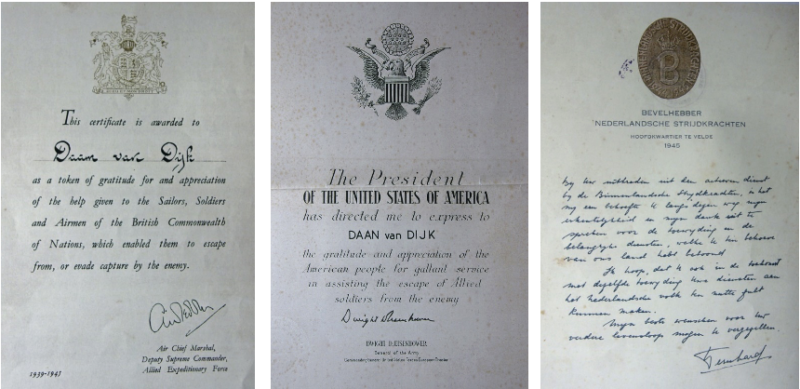 This certificate is awarded to
Daan van Dijk
as a token of gratitude for and appreciation
of the help given to the Sailors, Soldiers
and Airmen of the British Commonwealth
of Nations, which enabled them to escape
from, or evade capture by the enemy.
Air Chief Marshal,
Deputy Supreme Commander,
Allied Expeditionary Force
1939-1945
The President
OF THE UNITED STATES OF AMERICA
has directed me to express to
DAAN van DIJK
the gratitude and appreciation of the
American people for gallant service
in assisting the escape of Allied
soldiers from the enemy
Dwight Eisenhower
DWIGHT D. EISENHOWER
General of the Army
B
BEVELHEBBER
NEDERLANDSCHE STRIJDKRACHTEN
HOOFDKWARTIER TE VELDE
1945
Bij het uittreden uit den actieven dienst
bij de Binnenlandsche Strijdkrachten, is het
mij een behoefte U langs dezen weg mijn
erkentelijkheid en mijn dank uit te
spreken voor de toewijding en de
belangrijke diensten, welke U ten behoeve
van ons land hebt betoond.
Ik hoop, dat U ook in de toekomst
met dezelfde toewijding Uw diensten aan
het Nederlandsche volk ten nutte zult
kunnen maken.
Mijn beste wenschen voor Uw
verdere levensloop mogen U vergezellen.
Bernhard